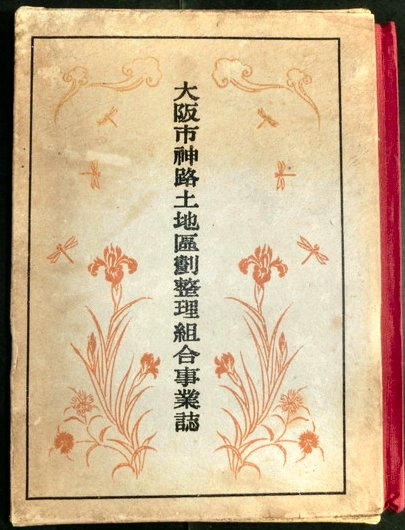 大阪市神路土地區劃整理組合事業誌